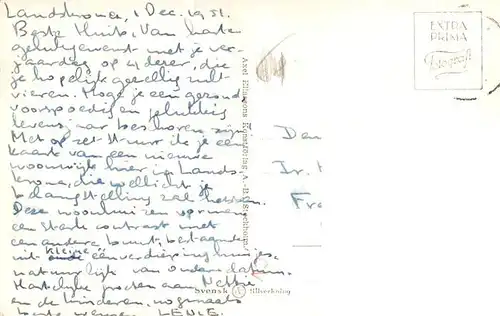 Landskrona, 1 Dec. 1951.
Beste Huib, Van harte
gelukgewenst met je ver-
jaardag op 4 dezer, die
je hopelijk gezellig zult
vieren. Moge je een gezond,
voorspoedig en gelukkig
levensjaar beschoren zijn.
Met opzet stuur ik je een
kaart van een nieuwe
woonwijk hier in Lands-
krona, die wellicht je
belangstelling zal hebben.
Deze woonhuizen vormen
een sterk contrast met
een andere buurt, bestaande
uit kleine eenverdieping huisjes,
natuurlijk van oudere datum.
Hartelijke groeten aan Nettie
en de kinderen, nogmaals
beste wensen LEndE.
EXTRA
PRIMA
Fotografi
Axel Eliassons Konstförlag A.-B. Stockholm
Den
Ir.
Fra
Svensk Tillverkning